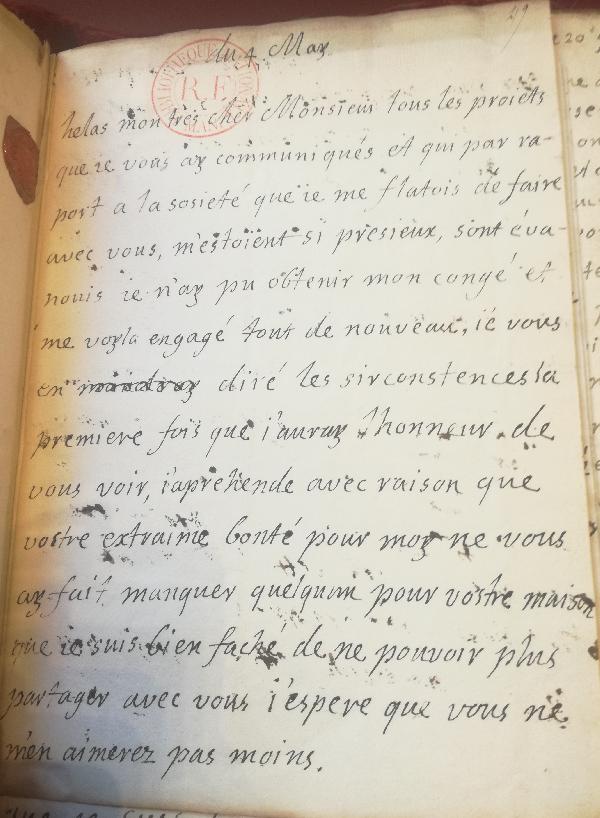 49
du 4 May
helas mon tres cher Monsieur tous les proiets
que ie vous ay communiqués et qui par ra-
port a la sosieté que ie me flatois de faire
avec vous, m'estoient si presieux, sont éva-
nouis ie n'ay pu obtenir mon congé et
me voyla engagé tout de nouveau, ie vous
en diré les sirconstences la
premiere fois que i'auray l'honneur de
vous voir, i'aprehende avec raison que
vostre extraime bonté pour moy ne vous
ay fait manquer quelquun pour vostre maison
que ie suis bien faché de ne pouvoir plus
partager avec vous i'espere que vous ne
m'en aimerez pas moins.
R.F.